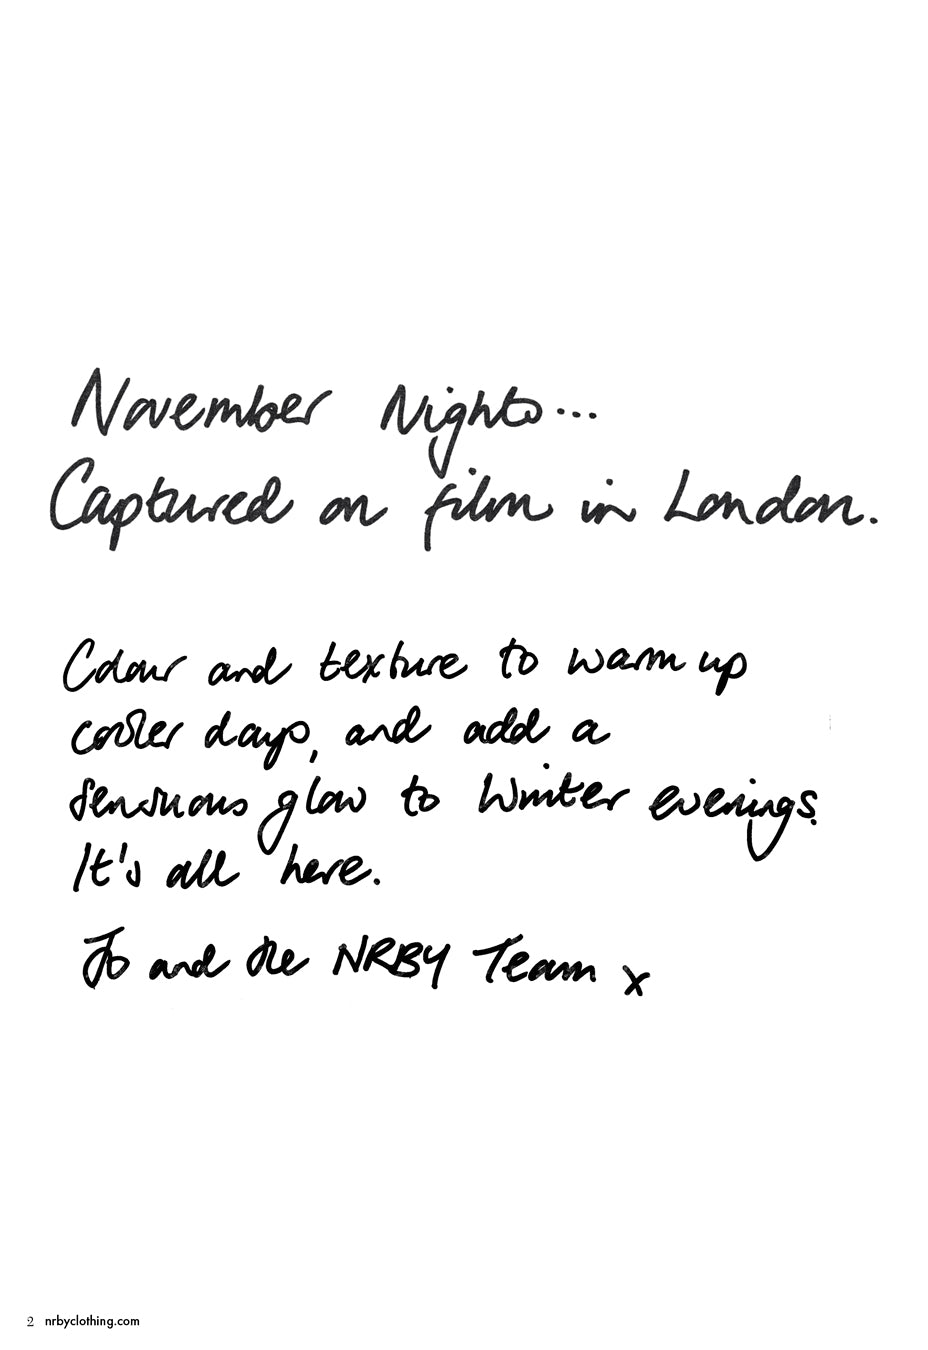 November Nights...
Captured on film in London.
Colour and texture to warm up
cooler days, and add a
sensuous glow to Winter evenings.
It's all here.
Jo and the NRBY Team x
2 nrbyclothing.com